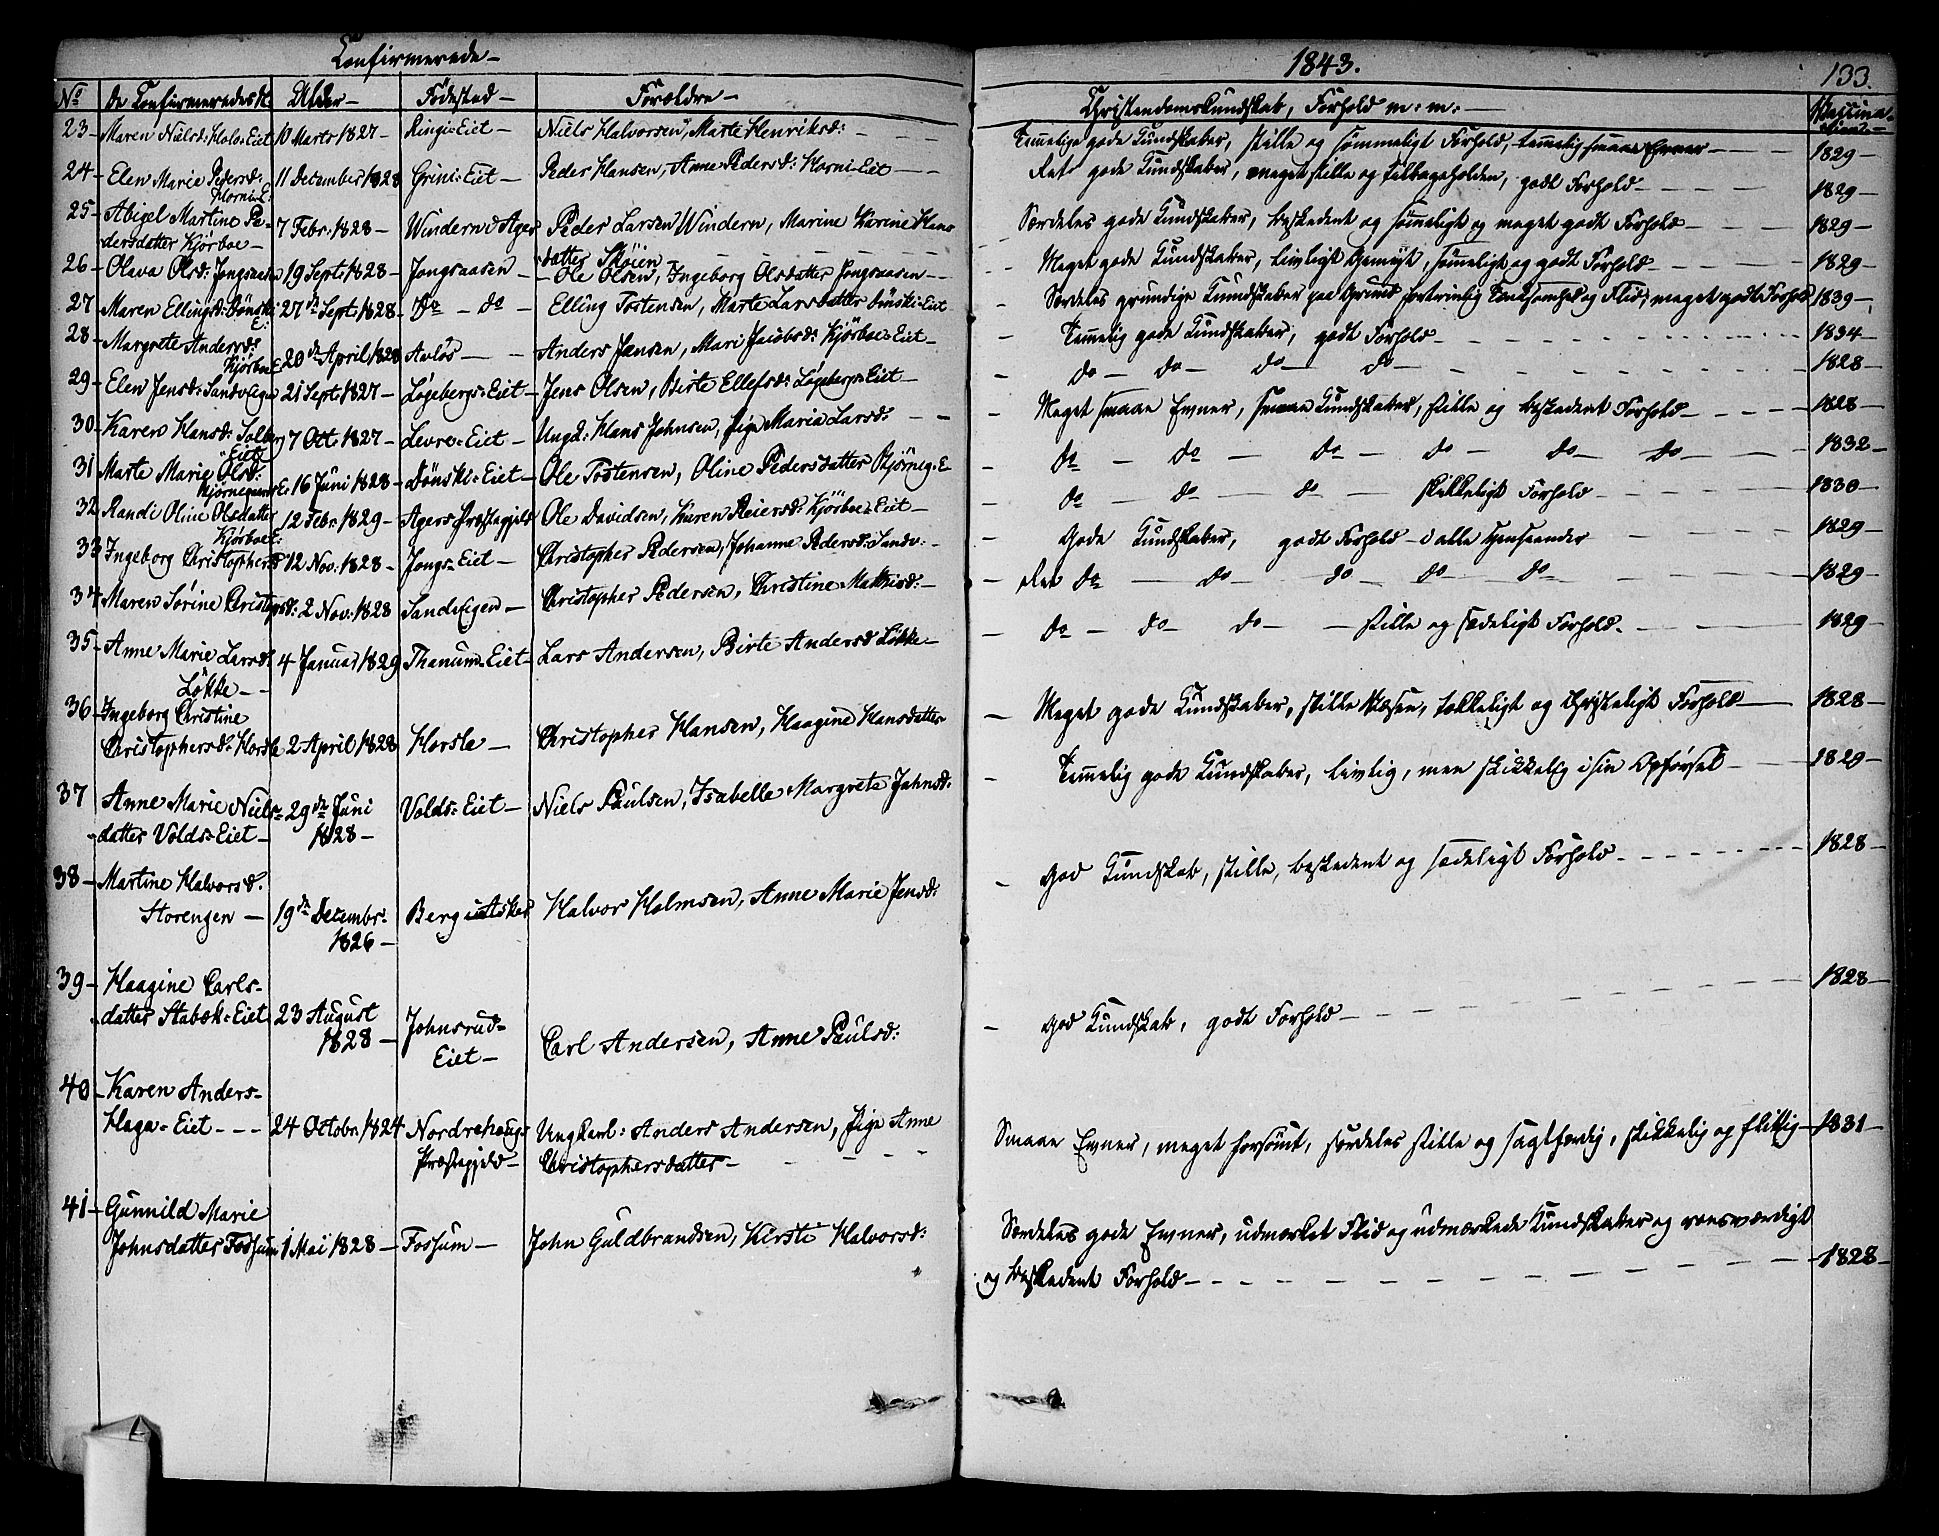 Confirmerede –
No De Confirmeredes N. Alder – Födested – Forældre –
23 – Maren Nielsd: Holo-Eiet 10 Marts 1827 – Ringi-Eiet – Niels Halvorsen, Marte Henriksd: –
24 – Elen Marie Pedersd: 11 December 1828 Grini-Eiet – Peder Hansen, Anne Pedersd: Horni-Eiet –
Horni-E:
25 – Abigel Martine Pe- 7 Febr: 1828 – Windern i Ager Peder Larsen Windern, Marine Karine Hans
dersdatter Kjörboe – datter Sköien –
26 – Olava Olsd: Jongsaasen 19 Sept: 1828 – Jongsaasen – Ole Olsen, Ingeborg Olsdatter Jongsaasen –
27 Maren Ellingsd: Dönski 27de Sept: 1828 – do – do – Elling Tostensen, Marte Larsdatter Dönski-Eiet
E:
28 – Margrete Andersd: 20de April 1828 Avlös – Anders Jensen, Mari Jacobsd: Kjörboe-Eiet –
Kjörboe E:
29 – Elen Jensd: Sandvigen 21 Sept: 1827 – Løgebergs-Eiet – Jens Olsen, Birte Ellefsd: Løgebergs-Eiet –
30 – Karen Hansd: Solberg 7 Oct: 1827 – Levre-Eiet – Ungk: Hans Johnsen, Pige Maria Larsd: –
Eiet
31 Marte Marie Olsd: 16 Juni 1828 – Dönski-Eiet – Ole Tostensen, Oline Pedersdatter Bjørneg: E
Bjørnegaards E:
32 – Randi Oline Olsdatter 12 Febr: 1829 – Agers Præstegjeld Ole Davidsen, Karen Reiersd: Kjörboe-Eiet –
Kjörboe E:
33 Ingeborg Christophersd: 12 Nov: 1828 – Jongs-Eiet – Christopher Pedersen, Johanne Pedersd: Sandv: –
34 – Maren Sörine Christopsd: 2 Nov: 1828 Sandvigen – Christopher Pedersen, Christine Mathisd: –
35 – Anne Marie Larsd: 4 Januar 1829 Thanum-Eiet – Lars Andersen, Birte Andersd Løkke –
Løkke –
36 – Ingeborg Christine
Christophersd: Horsle 2 April 1828 Horsle – Christopher Hansen, Haagine Hansdatter
37 Anne Marie Niels- 29de Juni Volds-Eiet – Niels Paulsen, Isabelle Margrete Jahnsd:
datter Volds-Eiet – 1828 –
38 – Martine Halvorsd.
Storengen – 19de Decembr. Berg i Asker Halvor Holmsen, Anne Marie Jensd:
1826 –
39 – Haagine Carls-
datter Stabek-Eiet 23 August Johnsrud-
1828 – Eiet – Carl Andersen, Anne Paulsd:
40 – Karen Anders-
Haga-Eiet – – – 24 Octobr: 1824 Nordrehougs Ungkarl: Anders Andersen, Pige Anne
Præstegjeld – Christophersdatter –
41 – Gunnild Marie
Johnsdatter Fossum 1 Mai 1828 – Fossum – John Guldbrandsen, Kirsti Halvorsd:
1843. 133.
Christendomskundskab, Forhold m: m: – Vaccina-
tion
Temmelige gode Kundskaber, stille og sømmeligt Forhold, temmelig smaae Evner – 1829 –
Ret gode Kundskaber, meget stille og tilbageholden, godt Forhold – 1829 –
Særdeles gode Kundskaber, beskedent og sømmeligt og meget godt Forhold – 1829 –
Meget gode Kundskaber, livligt Gemyt, sømmeligt og godt Forhold – 1829 –
Særdeles grundige Kundskaber paa Grund fortrinlig Tænksomhed og Flid, meget godt Forhold 1839 –
Temmelig gode Kundskaber, godt Forhold – 1834 –
do – do – do – do – 1828 –
Meget smaae Evner, smaae Kundskaber, stille og beskedent Forhold – 1828 –
do – do – do – do – do – do – 1832 –
do – do – do – skikkeligt Forhold – 1830 –
Gode Kundskaber, godt Forhold – i alle Henseender 1829 –
Ret do – do – do – do – do – 1829 –
do – do – do – stille og sædeligt Forhold – 1829 –
Meget gode Kundskaber, stille Væsen, tækkeligt og christeligt Forhold – 1828 –
Temmelig gode Kundskaber, livlig, men skikkelig i sin Opførsel – 1829 –
God Kundskab, stille, beskedent og sædeligt Forhold – 1828 –
God Kundskab, godt Forhold – 1828 –
Smaae Evner, meget forsømt, særdeles stille og sagtfærdig, skikkelig og flittig – 1831 –
Særdeles gode Evner, udmærket Flid og udmærkede Kundskaber og roesværdigt
og beskedent Forhold – 1828 –